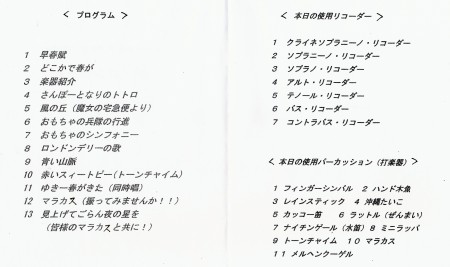 < プログラム >
1 早春賦
2 どこかで春が
3 楽器紹介
4 さんぽーとなりのトトロ
5 風の丘（魔女の宅急便より）
6 おもちゃの兵隊の行進
7 おもちゃのシンフォニー
8 ロンドンデリーの歌
9 青い山脈
10 赤いスィートピー（トーンチャイム）
11 ゆき一春がきた（同時唱）
12 マラカス（振ってみませんか！！）
13 見上げてごらん夜の星を
（皆様のマラカスと共に！）
< 本日の使用リコーダー >
1 クライネソプラニーノ・リコーダー
2 ソプラニーノ・リコーダー
3 ソプラノ・リコーダー
4 アルト・リコーダー
5 テノール・リコーダー
6 バス・リコーダー
7 コントラバス・リコーダー
< 本日の使用パーカッション（打楽器） >
1 フィンガーシンバル 2 ハンド木魚
3 レインスティック 4 沖縄たいこ
5 カッコー笛 6 ラットル（ぜんまい）
7 ナイチンゲール（水笛） 8 ミニラッパ
9 トーンチャイム 10 マラカス
11 メルヘンクーゲル